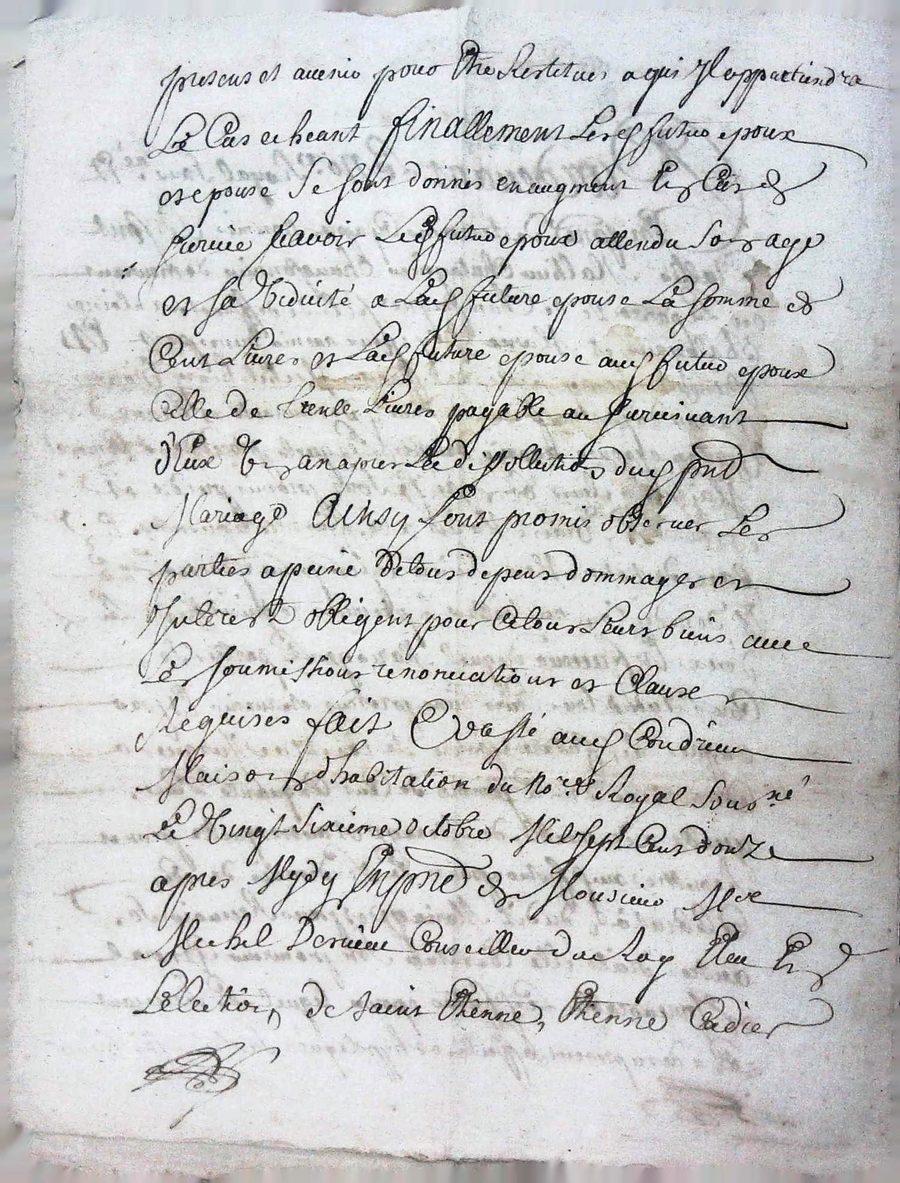 presens et avenir pour Etre Restitues a qui Il appartiendra
Le Cas echeant finallement Lesd futur epoux
et epouse Se sont donnés en augment En Cas de
survie scavoir Led futur epoux attendu Son age
et sa Viduité a Lad future epouse La somme de
Cent Livres et Lad future epouse aud futur epoux
Celle de trente Livres payable au survivant
d'Eux Un an apres La dissollution dud pnt
Mariage Ainsy Lont promis observer Les
parties a peine De tous depens dommages et
Interest obligent pour Ce tous Leurs biens avec
Les soumissions renonciations et Clauses
Requises fait Et passé aud Condrieu
Maison d'habitation du No.re Royal Sous.né
Le Vingt Sixieme octobre Mil sept Cens douze
apres Mydy En pnce de Monsieur M.re
Michel Conseiller du Roy Eleu En
Lelection de saint Etienne, Etienne Cadier